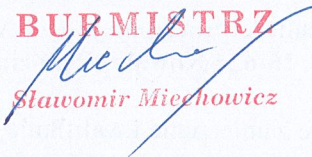 BURMISTRZ
Sławomir Miechowicz